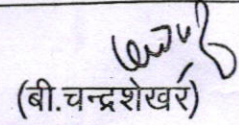 (बी.चन्द्रशेखर)